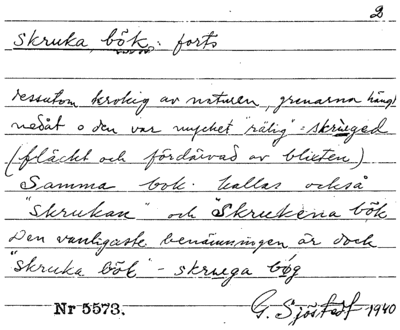 2
Skruka bök: forts
dessutom krokig av naturen, grenarna hängt
nedåt o den var mycket "rälig" = skrueged
(fläckt och fördärvad av blixten)
Samma bok kallas också
"Skrukan" och "Skrukena bök
Den vanligaste benämningen är dock
"skruka bök" - skruega bøg
Nr 5573. G. Sjöstedt 1940